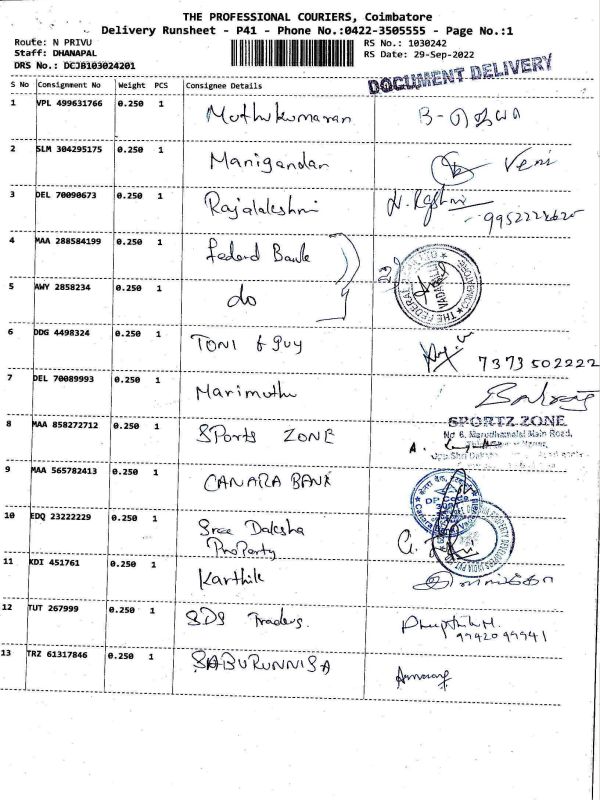 THE PROFESSIONAL COURIERS, Coimbatore
Delivery Runsheet - P41 - Phone No.:0422-3505555 - Page No.:1
Route: N PRIVU
RS No.: 1030242
Staff: DHANAPAL
RS Date: 29-Sep-2022
DRS No.: DCJB103024201
DOCUMENT DELIVERY
S No Consignment No Weight PCS Consignee Details
1 VPL 499631766 0.250 1 Muthukumaran
2 SLM 304295175 0.250 1 Manigandan Veni
3 DEL 70090673 0.250 1 Rajalakshmi
4 MAA 288584199 0.250 1 Federal Bank
5 AWY 2858234 0.250 1 do
THE FEDERAL
6 DDG 4498324 0.250 1 TONI & GUY 7373502222
7 DEL 70089993 0.250 1 Marimuthu
8 MAA 858272712 0.250 1 SPorts ZONE
SPORTZ ZONE
No 6, Marudhamalai Main Road,
9 MAA 565782413 0.250 1 CANARA BANK
10 EDQ 23222229 0.250 1 Sree Daksha
ProPerty
11 KDI 451761 0.250 1 Karthik
12 TUT 267999 0.250 1 SDS Traders
9942099941
13 TRZ 61317846 0.250 1 SABURUNNISA